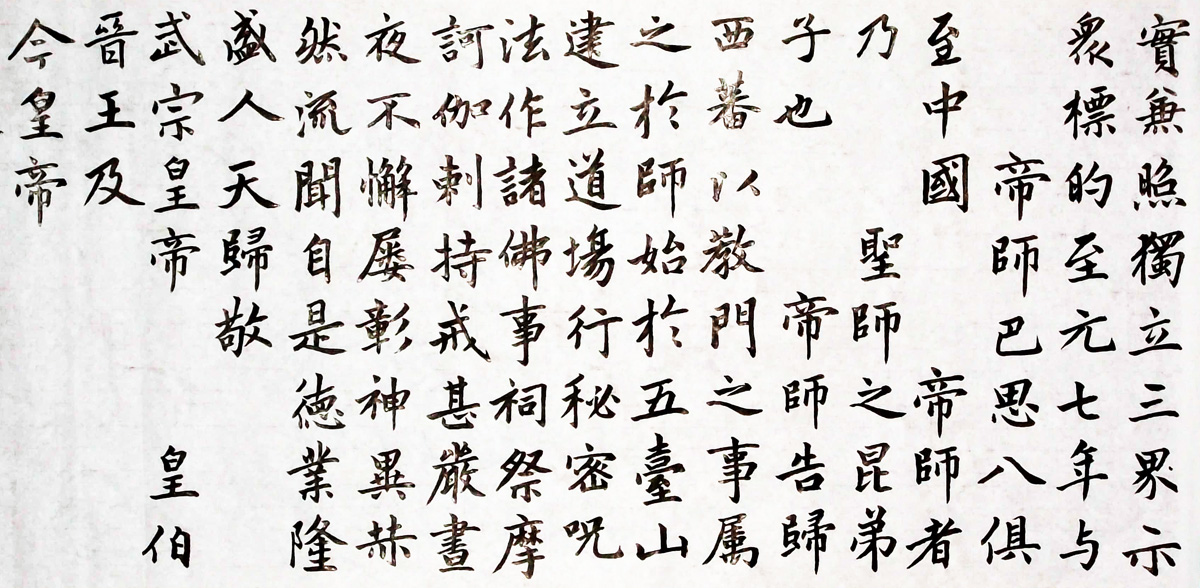 實兼照獨立三界示
衆標的至元七年与
帝師巴思八俱
至中國帝師者
乃聖師之昆弟
子也帝師告歸
西蕃以教門之事属
之於師始於五臺山
建立道場行秘密咒
法作諸佛事祠祭摩
訶伽剌持戒甚嚴晝
夜不懈屡彰神異赫
然流聞自是德業隆
盛人天歸敬
武宗皇帝皇伯
晉王及
今皇帝